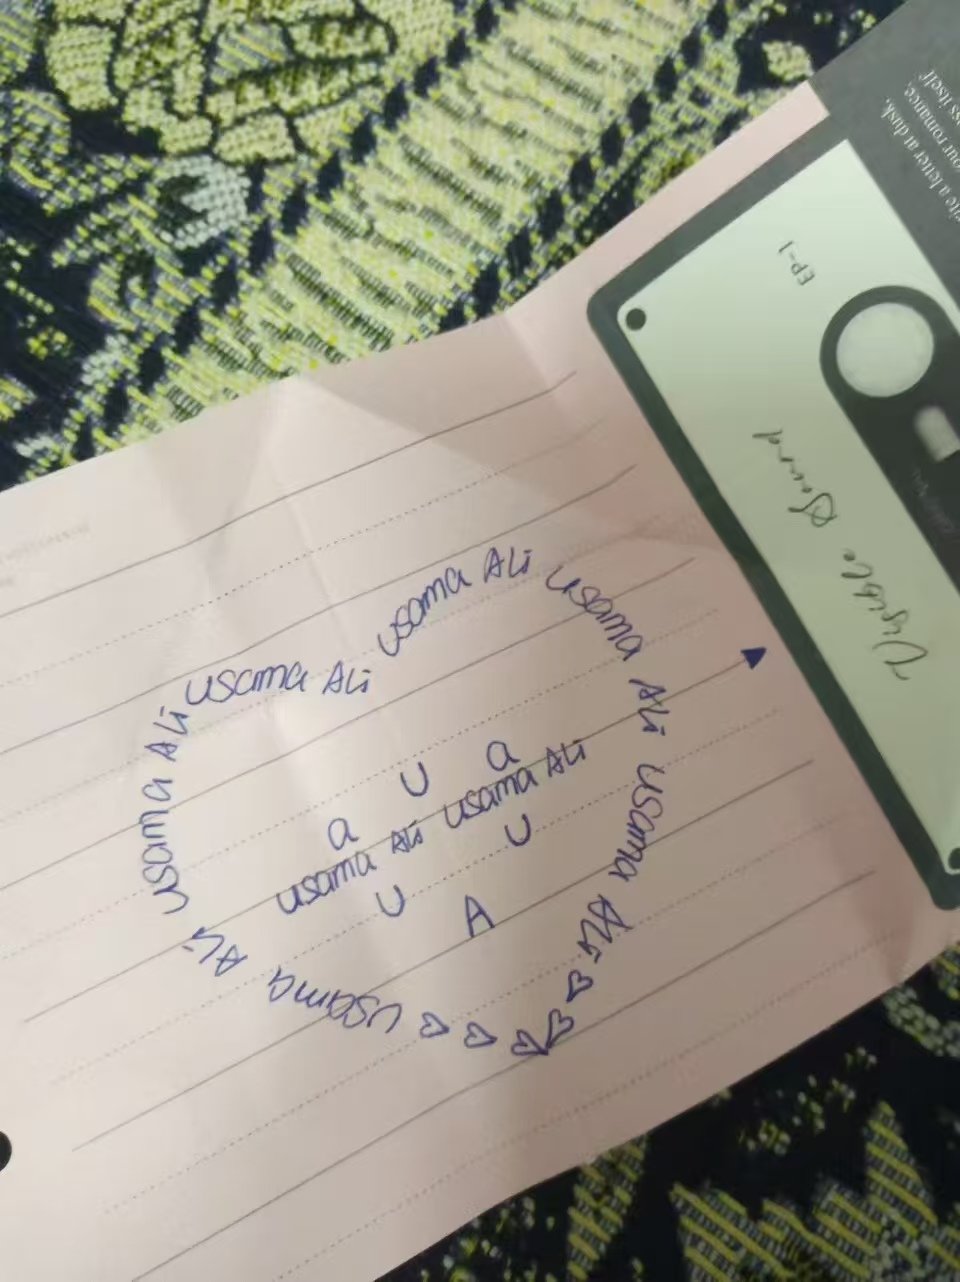 write a letter at dusk,
your romance,
itself
EP-1
Visible Sound
usama Ali
usama Ali
usama Ali
usama Ali
usama Ali
usama Ali
a U a
usama Ali usama Ali
U A U